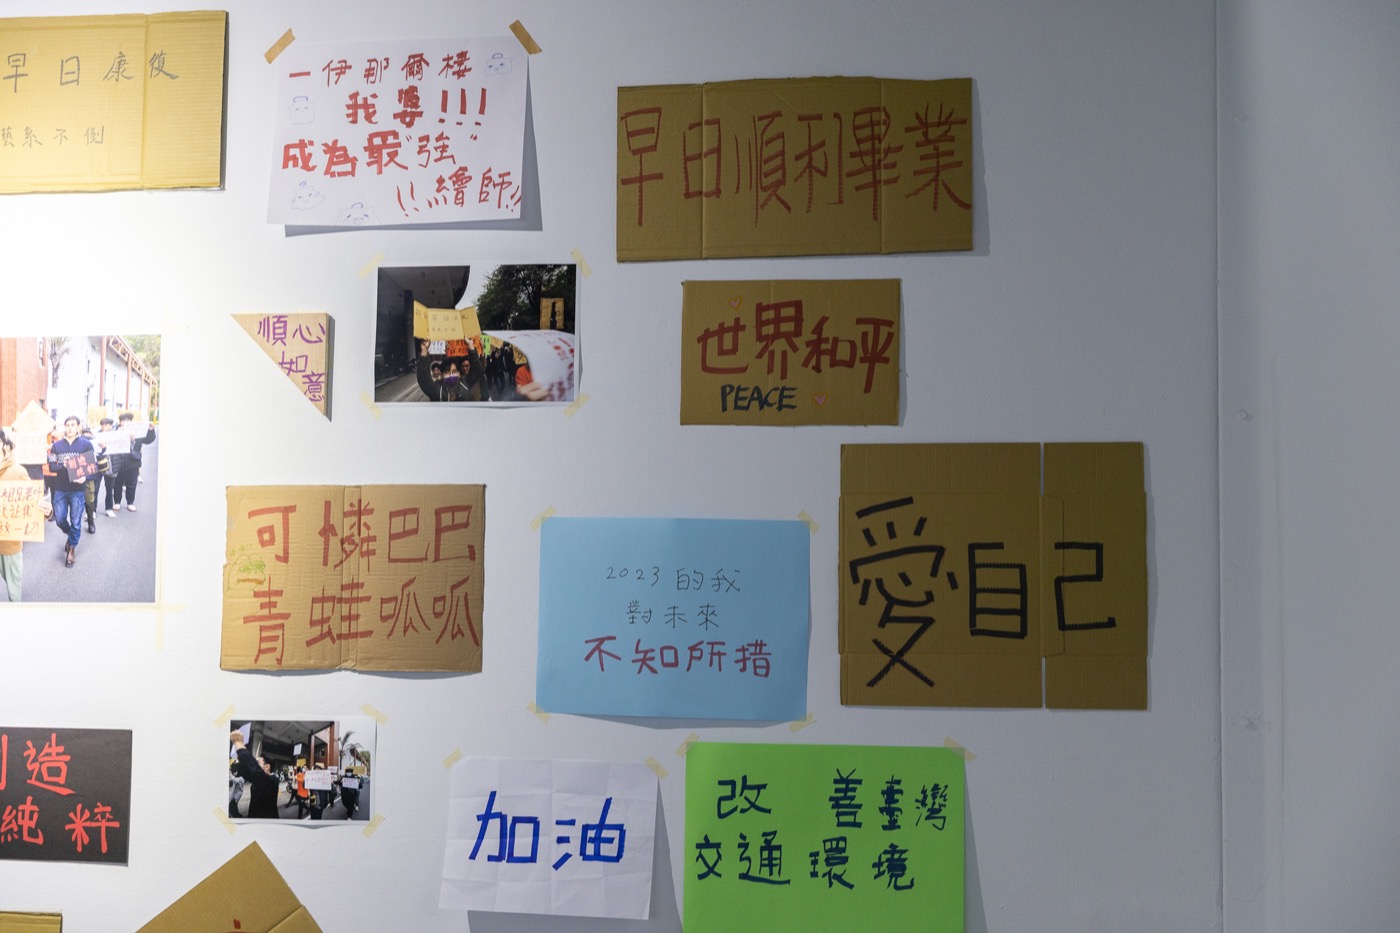 早日康復
藝系不倒
一伊那爾棲
我婆!!!
成為最"強"
!!繪師!!
早日順利畢業
順心
如意
世界和平
PEACE
可憐巴巴
青蛙呱呱
2023的我
對未來
不知所措
愛自己
創造
純粹
加油
改善臺灣
交通環境